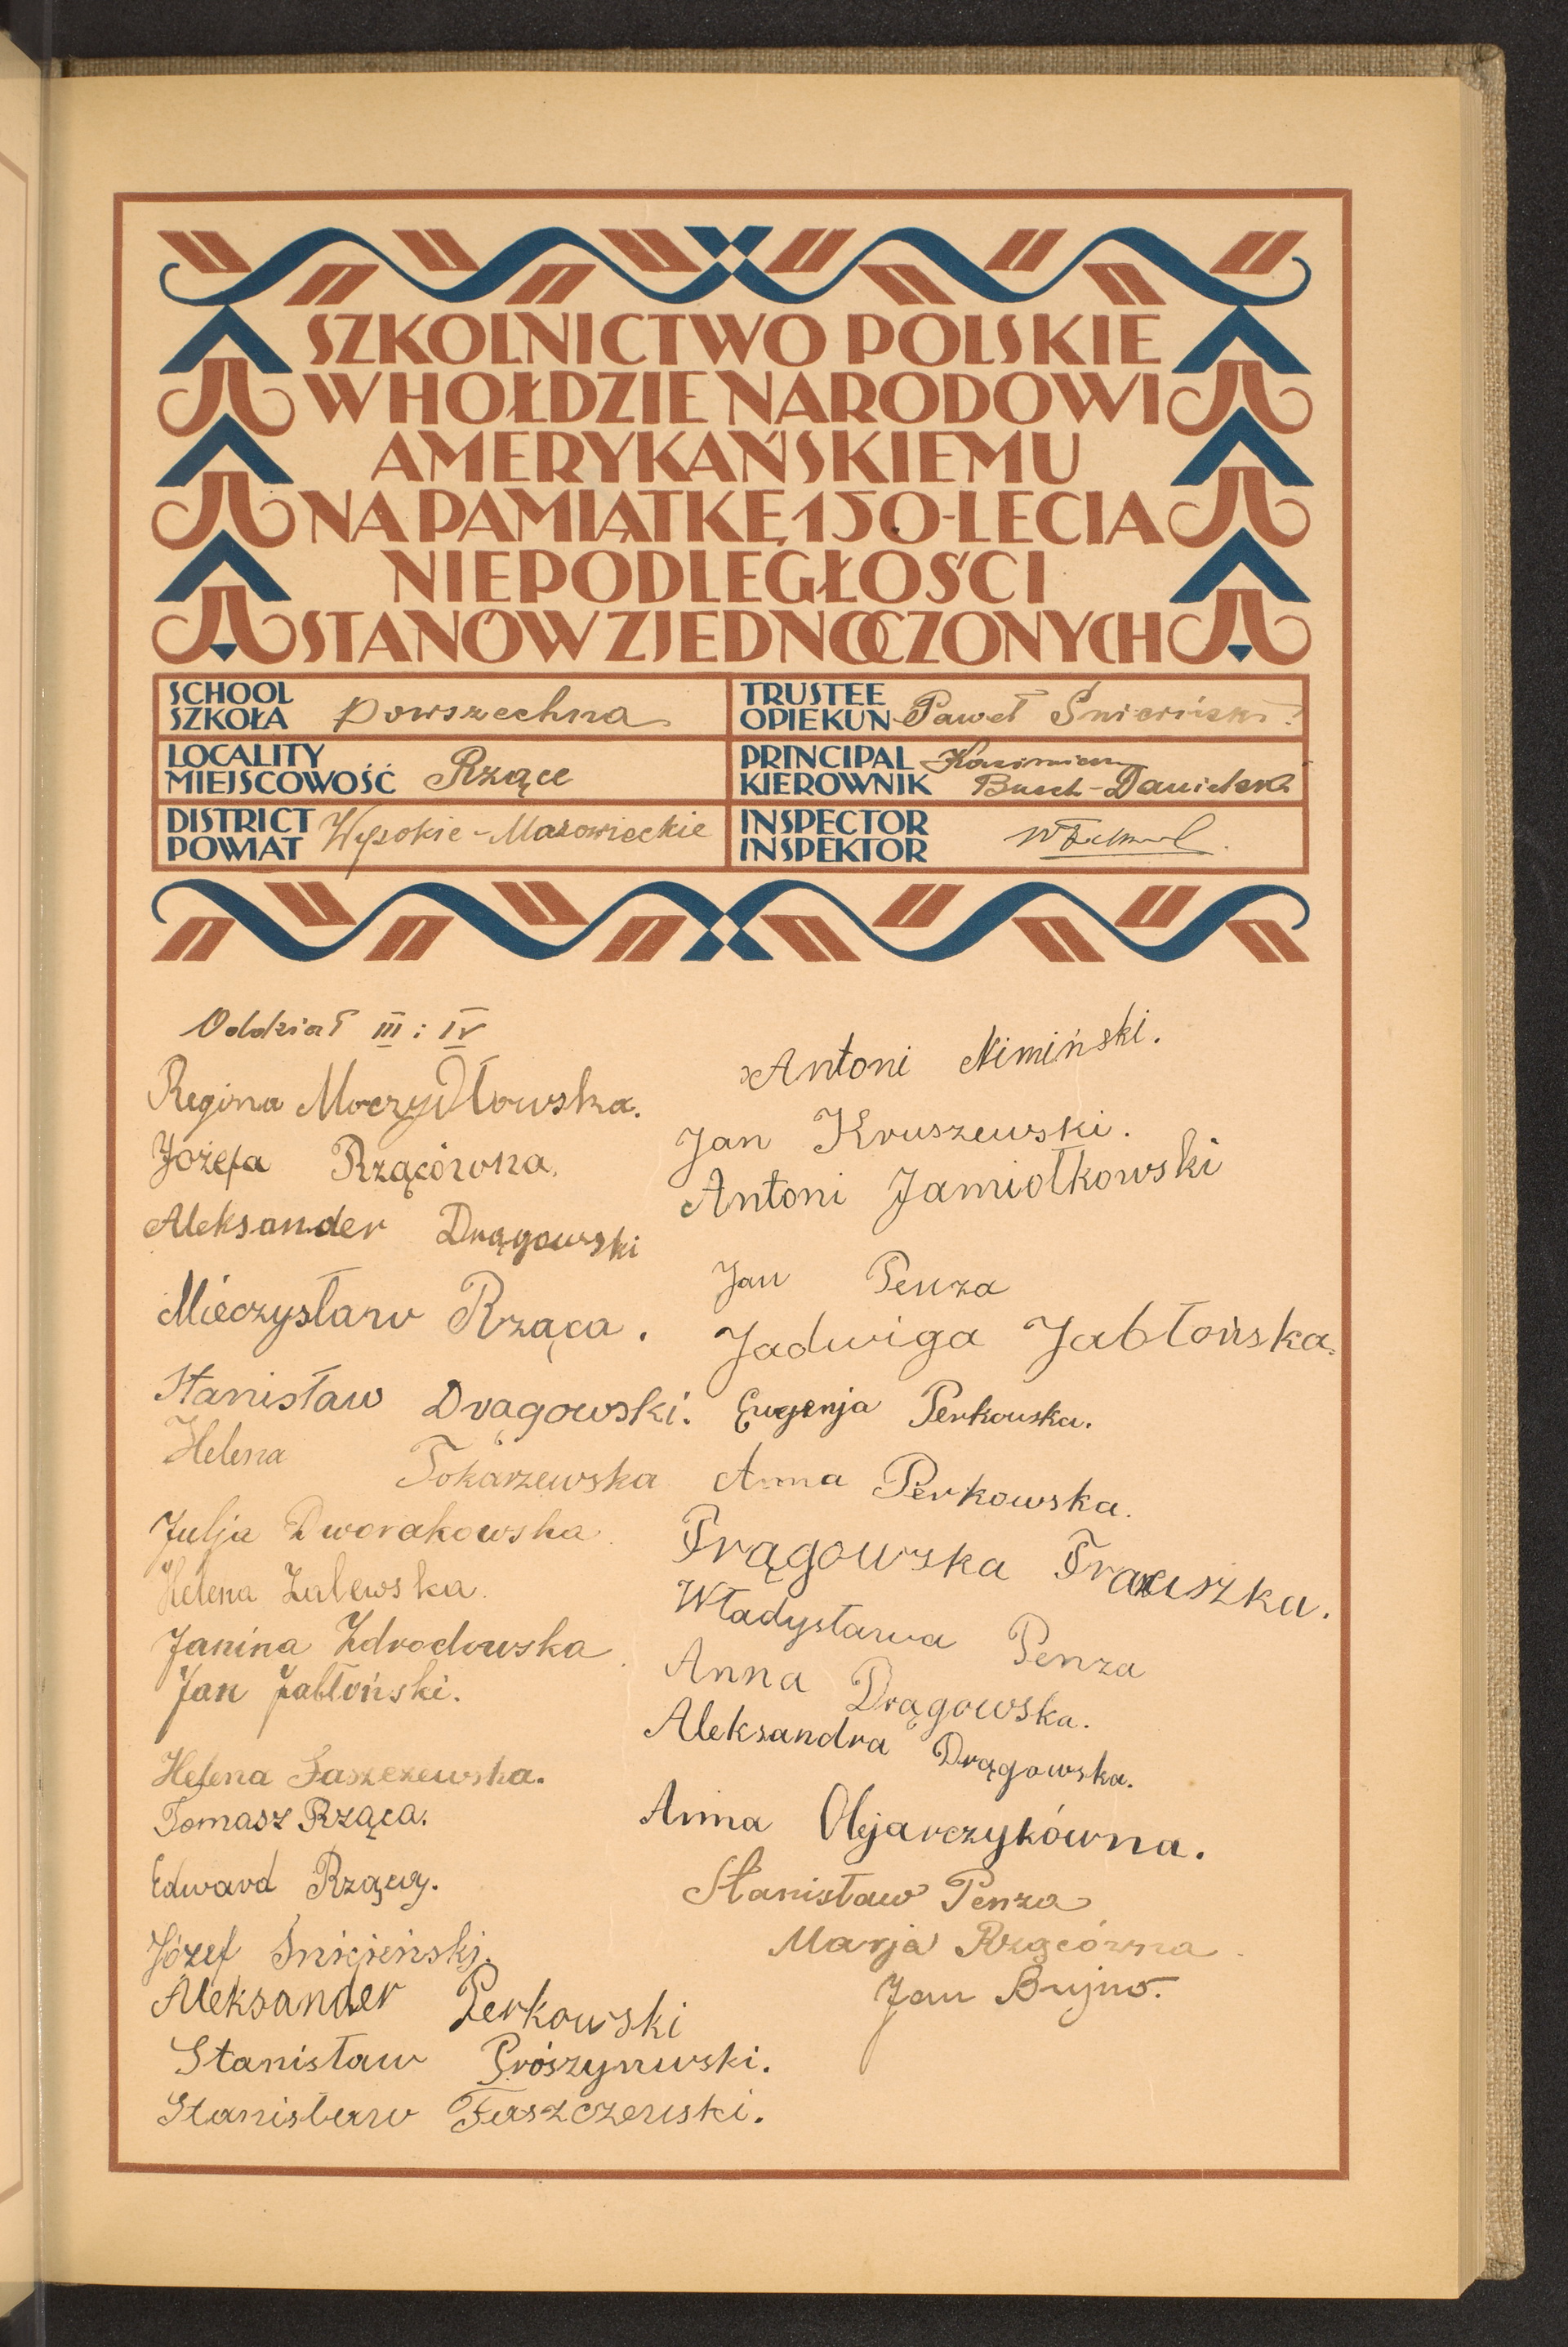 SZKOLNICTWO POLSKIE
W HOŁDZIE NARODOWI
AMERYKAŃSKIEMU
NA PAMIĄTKĘ 150-LECIA
NIEPODLEGŁOŚCI
STANÓW ZJEDNOCZONYCH
SCHOOL
SZKOŁA Powszechna
TRUSTEE
OPIEKUN Paweł
LOCALITY
MIEJSCOWOŚĆ Rzące
PRINCIPAL Kazimierz
KIEROWNIK Busch-Danielski
DISTRICT
POWIAT Wysokie-Mazowieckie
INSPECTOR
INSPEKTOR
Oddział III i IV
Regina Moczydłowska.
Józefa Rzącówna.
Aleksander Drągowski
Mieczysław Rząca.
Stanisław Drągowski.
Helena Tokarzewska
Julja Dworakowska
Helena Zalewska.
Janina Zdrodowska.
Jan Jabłoński.
Helena Faszczewska.
Tomasz Rząca.
Edward Rzący.
Józef
Aleksander Perkowski
Stanisław
Stanisław Faszczewski.
Antoni Nimiński.
Jan Kruszewski.
Antoni Jamiołkowski
Jan Penza
Jadwiga Jabłońska.
Eugenja Perkowska.
Anna Perkowska.
Drągowska
Władysława Penza
Anna Drągowska.
Aleksandra Drągowska.
Anna Olejarczykówna.
Stanisław Penza
Marja Rzącówna.
Jan Bujno.